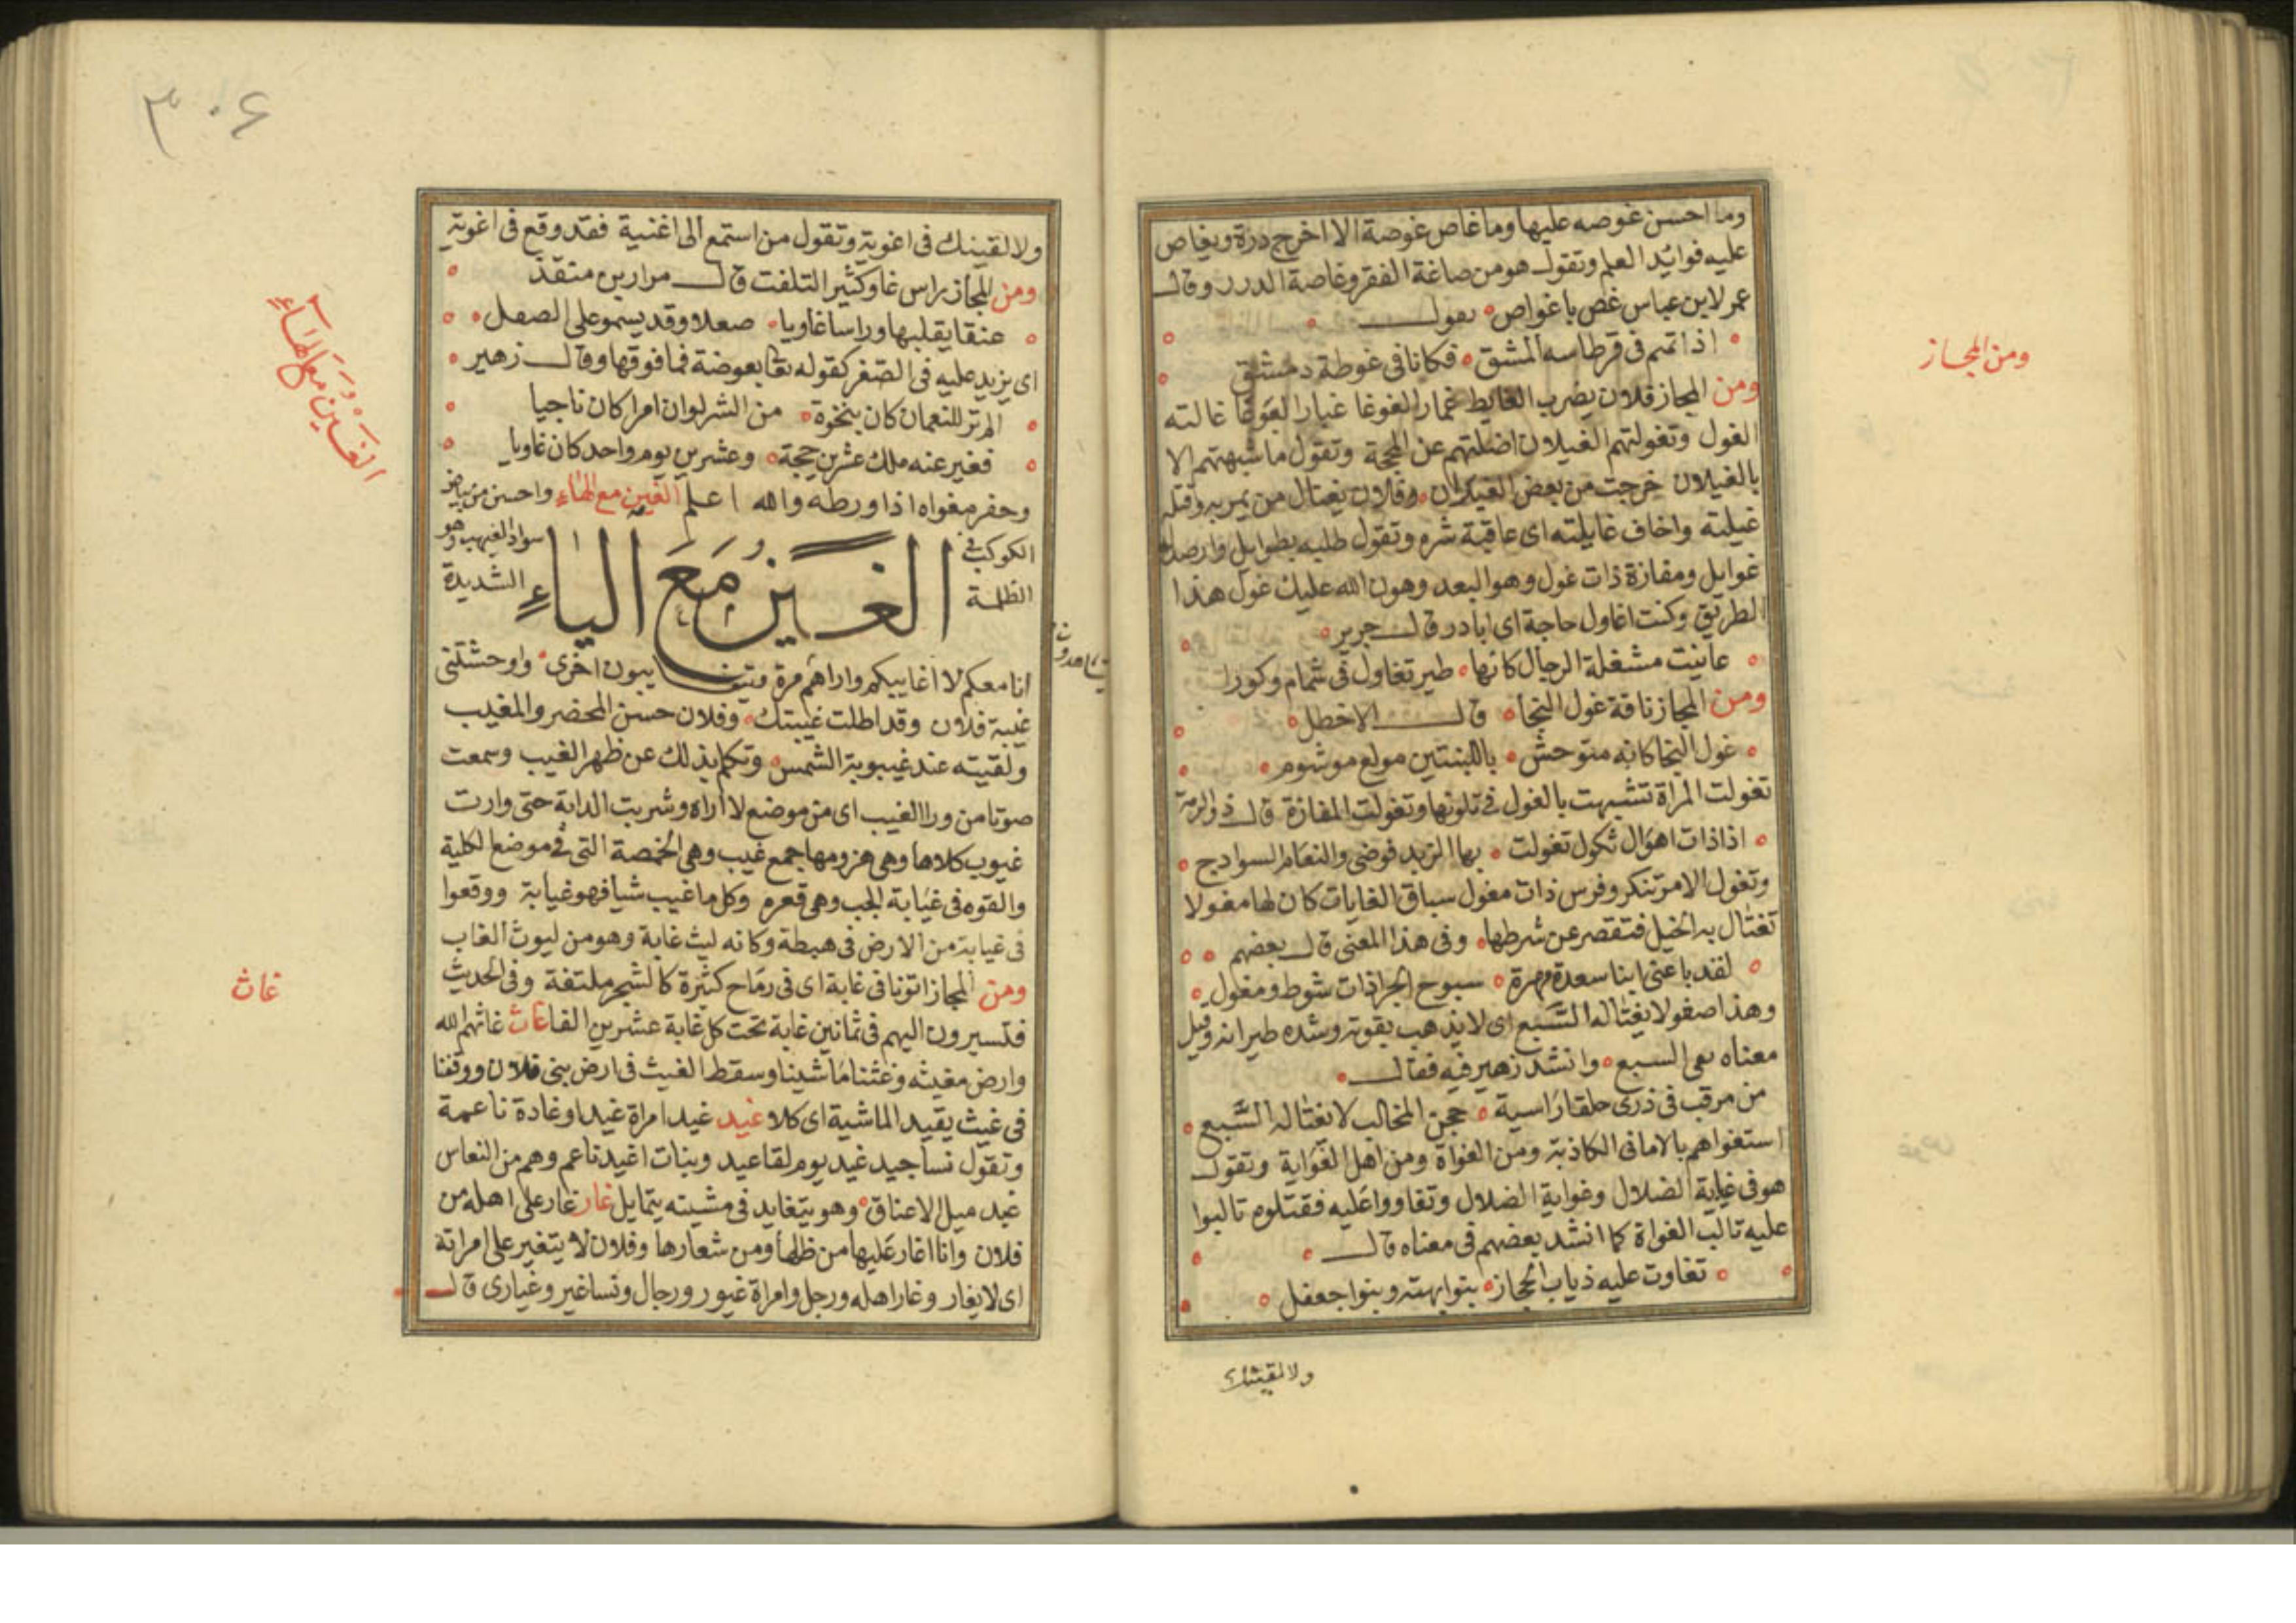 وما احسن غوصه عليها وما غاص غوصة الا اخرج درة ويغاص
عليه فوايد العلم وتقول هو من صاغة الفقر وغاصة الدرر وقال
عمر لابن عباس غص يا غواص
اذا تمم فى قرطاسه المشق فكانا فى غوطة دمشق
ومن المجاز فلان يضرب الغايط غمار الغوغا غبار الغوغا غالته
الغول وتغولتهم الغيلان اضلتهم عن المحجة وتقول ما شبهتهم الا
بالغيلان خرجت من بعض الغيلان وفلان يغتال من يمر به وقتله
غيلته واخاف غايلته اى عاقبة شره وتقول طلبه بطوايل وارصد له
غوايل ومفازة ذات غول وهو البعد وهون الله عليك غول هذا
الطريق وكنت اغاول حاجة اى ابادر قال جرير
عاينت مشغلة الرجال كانها طير تغاول فى شمام وكورا
ومن المجاز ناقة غول النجا قال الاخطل
غول النجا كانه متوحش باللبنتين مولع موشوم
تغولت المراة تشبهت بالغول فى تلونها وتغولت المفازة قال ذو الرمة
اذا ذات اهوال ثكول تغولت بها الربد فوضى والنعام السوادح
وتغول الامر تنكر وفرس ذات مغول سباق الغايات كان لها مغولا
تغتال به الخيل فتقصر عن شرطها وفى هذا المعنى قال بعضهم
لقد باعنى ابنا سعدة مهرة سبوح الجرا ذات شوط ومغول
وهذا صقر لا يغتاله الشبع اى لا يذهب بقوته وشده طيرانه وقيل
معناه السبع وانشد زهير فيه فقال
من مرقب فى ذرى حلقا راسية حجن المخالب لا تغتاله الشبع
استغواهم بالامانى الكاذبة ومن الغواة ومن اهل الغواية وتقول
هو فى غيابة الضلال وغواية الضلال وتغاووا عليه فقتلوه تالبوا
عليه تالب الغواة كما انشد بعضهم فى معناه قال
تغاوت عليه ذياب الحجاز بنوا بهثة وبنوا جعفل
ولا لقينك
ومن المجاز
٣٠۶
ولا لقينك فى اغوية وتقول من استمع الى اغنية فقد وقع فى اغوية
ومن المجاز راس غاو كثير التلفت قال مرار بن منقذ
عنقا يقلبها وراسا غاويا صعلا وقد يسمو على الصعل
اى يزيد عليه فى الصغر كقوله تعا بعوضة فما فوقها وقال زهير
الم تر للنعمان كان بنخوة من الشر لو ان امرا كان ناجيا
فغير عنه ملك عشرين حجة وعشرين يوم واحد كان غاويا
وحفر مغواه اذا ورطه والله اعلم الغين مع الهاء واحسن من بياض
الكوكب فى سواد الغيهب وهو
الظلمة الشديدة
الغين مع الياء
انا معكم لا اغايبكم واراهم مرة ويتغايبون اخرى واوحشتنى
غيبة فلان وقد اطلت غيبتك وفلان حسن المحضر والمغيب
ولقيته عند غيبوبة الشمس وتكلم بذلك عن ظهر الغيب وسمعت
صوتا من ورا الغيب اى من موضع لا اراه وشربت الدابة حتى وارت
غيوب كلاها وهى هزومها جمع غيب وهى الخمصة التى فى موضع الكلية
والقوه فى غيابة الجب وهى قعره وكل ما غيب شيا فهو غيابة ووقعوا
فى غيابة من الارض فى هبطة وكانه ليث غابة وهو من ليوث الغاب
ومن المجاز اتونا فى غابة اى فى رماح كثيرة كالشجر ملتفة وفى الحديث
فتسيرون اليهم فى ثمانين غابة تحت كل غابة عشرين الفا غاث غاثهم الله
وارض مغيثه وغثنا ما شينا وسقط الغيث فى ارض بنى فلان ووقفنا
فى غيث يقيد الماشية اى كلا غيد غيد امراة غيدا وغادة ناعمة
وتقول نسا جيد غيد يوم لقا عيد وبنات اغيد ناعم وهم من النعاس
غيد ميل الاعناق وهو يتغايد فى مشيته يتمايل غار غار على اهله من
فلان وانا اغار عليها من ظلها ومن شعارها وفلان لا يتغير على امراته
اى لا يغار وغار اهله ورجل وامراة غيور ورجال ونسا غير وغيارى قال
الغين مع الهاء
غاث